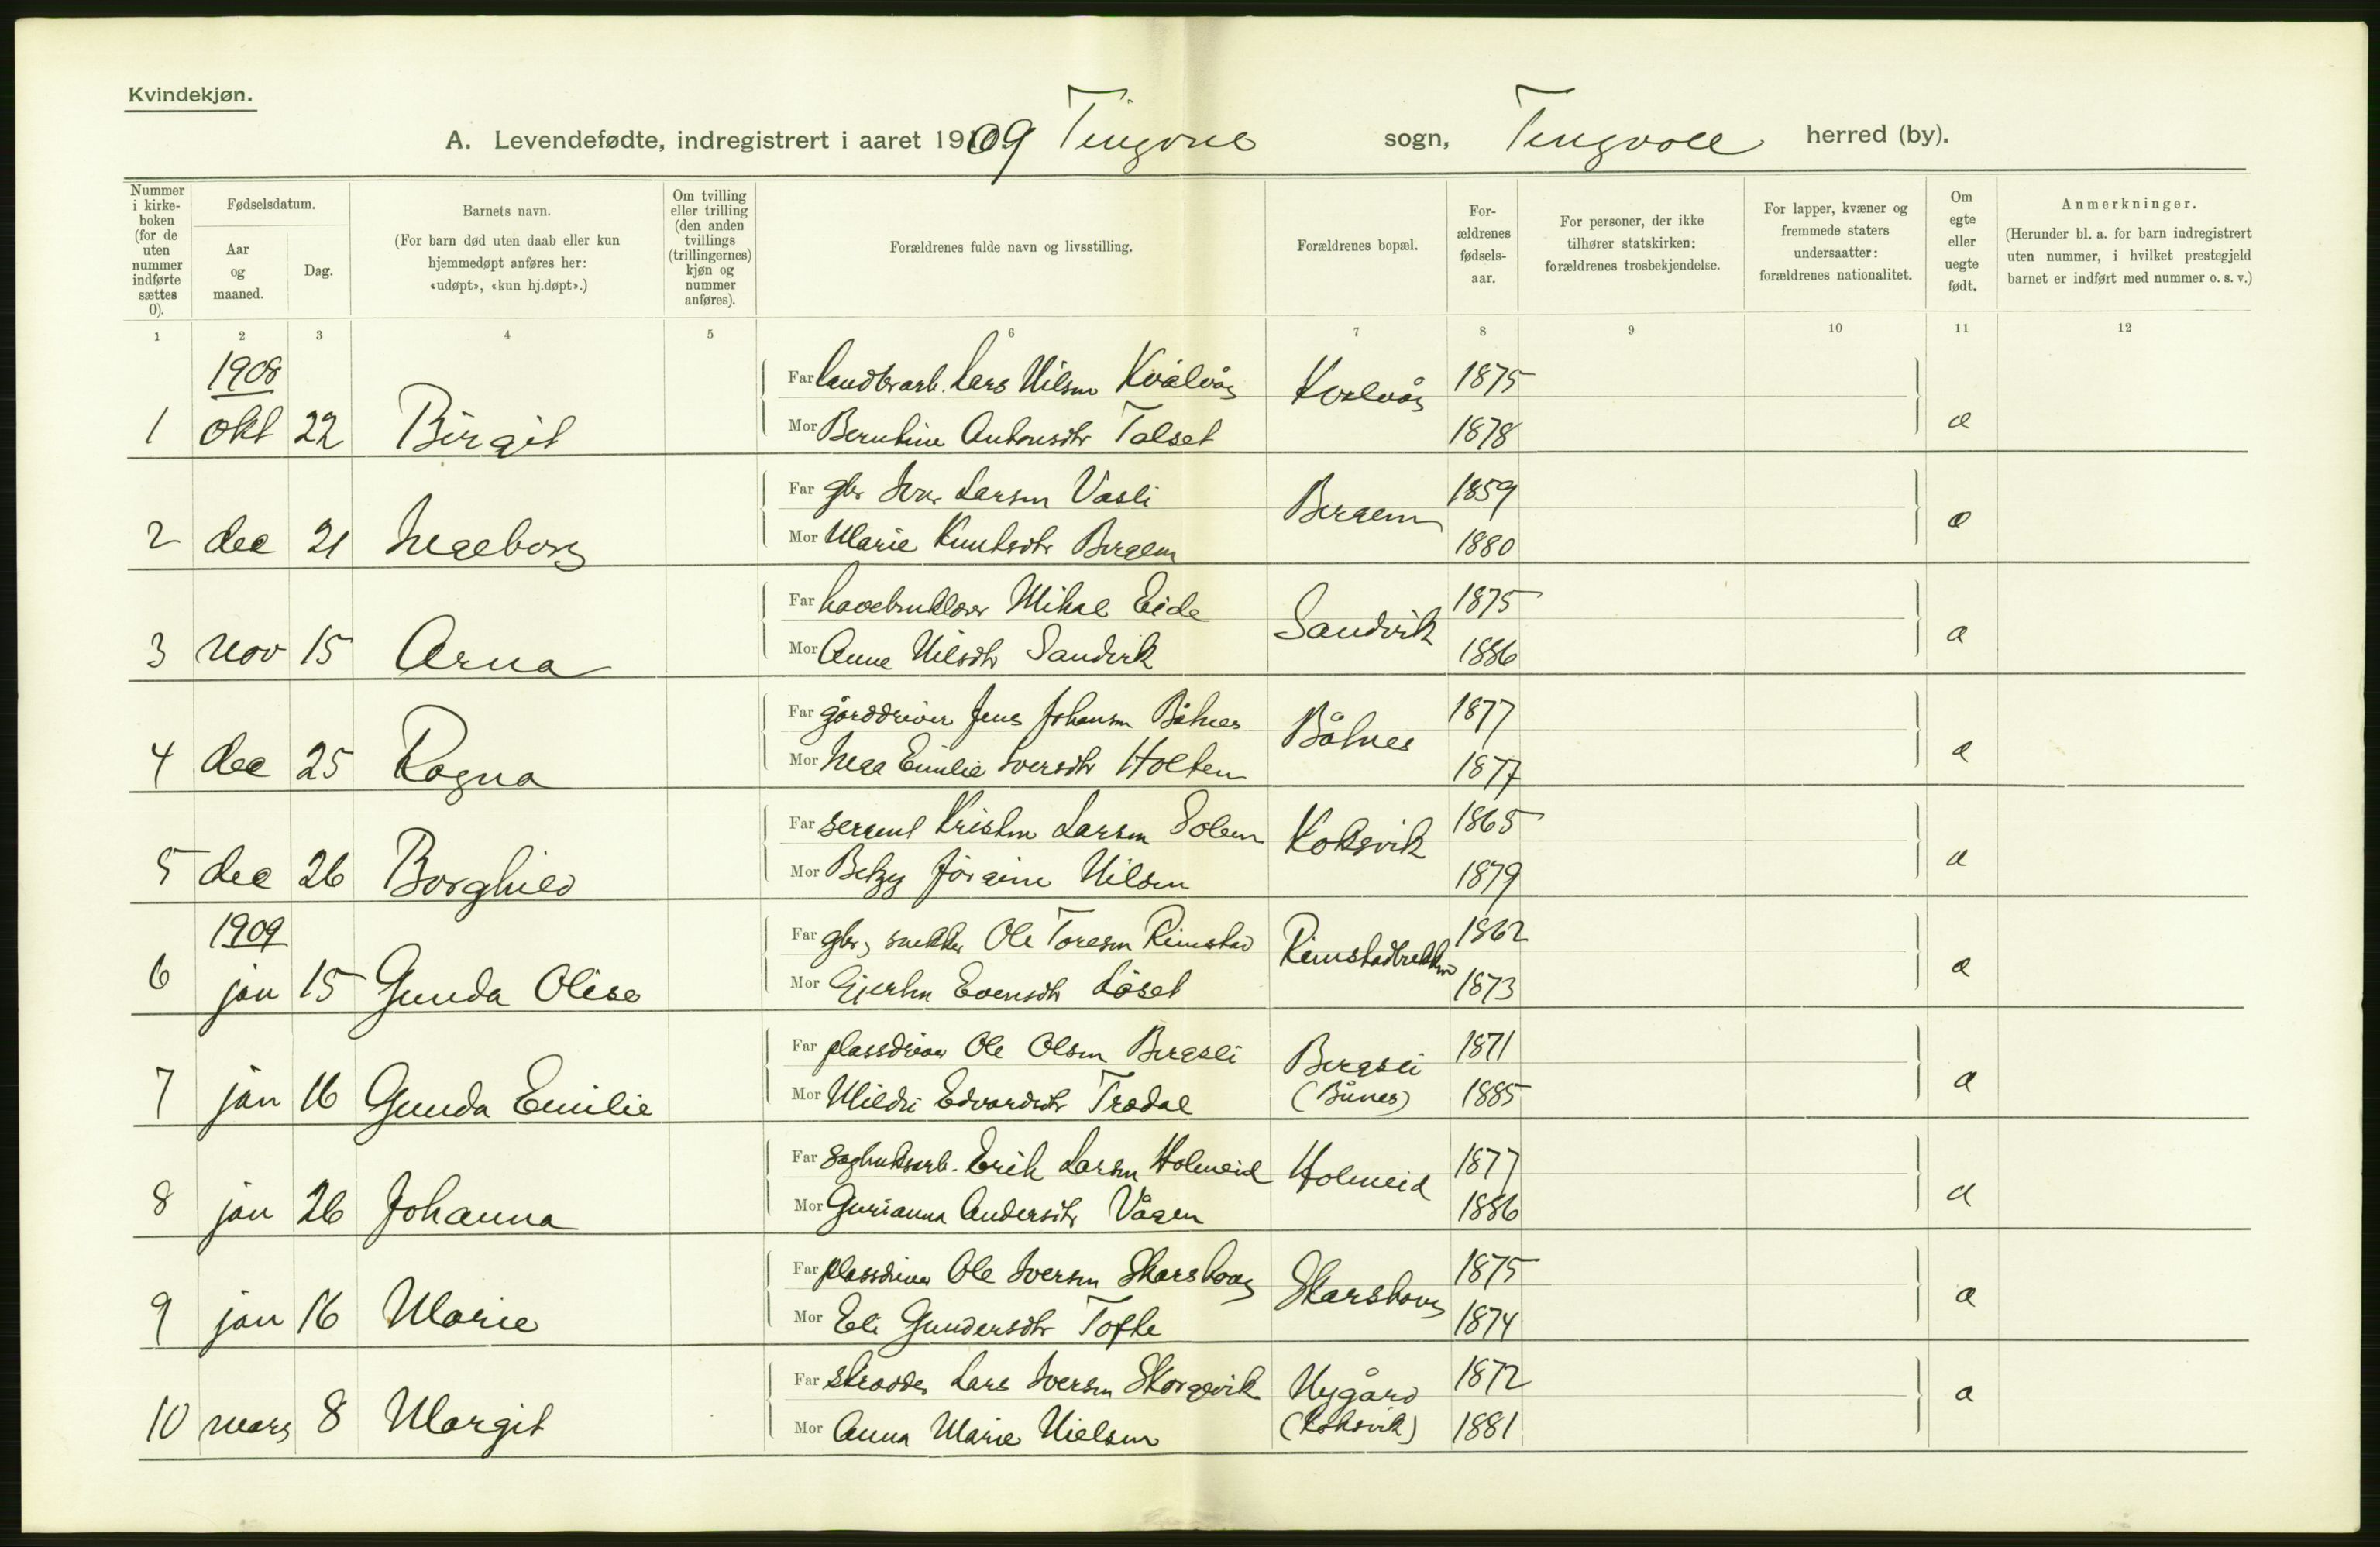 Kvindekjøn.
A. Levendefødte, indregistrert i aaret 1909 Tingvoll sogn, Tingvoll herred (by).
Nummer i kirke-boken (for de uten nummer indførte sættes 0).
Fødselsdatum.
Aar og maaned.
Dag.
Barnets navn.
(For barn død uten daab eller kun hjemmedøpt anføres her: «udøpt», «kun hj.døpt».)
Om tvilling eller trilling (den anden tvillings (trillingernes) kjøn og nummer anføres).
Forældrenes fulde navn og livsstilling.
Forældrenes bopæl.
For-ældrenes fødsels-aar.
For personer, der ikke tilhører statskirken: forældrenes trosbekjendelse.
For lapper, kvæner og fremmede staters undersaatter: forældrenes nationalitet.
Om egte eller uegte født.
Anmerkninger.
(Herunder bl. a. for barn indregistrert uten nummer, i hvilket prestegjeld barnet er indført med nummer o. s. v.)
1 2 3 4 5 6 7 8 9 10 11 12
1908
Far landbrarb. Lars Nilsen Kvålvåg Kvalvåg 1875
1 okt 22 Birgit Mor Berntine Antonsdtr Talset 1878 e
Far gbr Ivar Larsen Vasli Bergem 1859
2 dec 21 Ingeborg Mor Marie Knutsdtr Bergem 1880 e
Far havebruklærer Mikal Eide Sandvik 1875
3 nov 15 Arna Mor Anne Nilsdtr Sandvik 1886 e
Far gårddriver Jens Johansen Båhnes Båhnes 1877
4 dec 25 Ragna Mor Inga Emilie Iversdtr Holten 1877 e
Far sergent Kristen Larsen Solem Koksvik 1865
5 dec 26 Borghild Mor Betzy Jørgine Nilsen 1879 e
1909
Far gbr, snekker Ole Toresen Rimstad Rimstadbrekken 1862
6 jan 15 Gunda Olise Mor Gjertru Evensdtr Løset 1873 e
Far plassdriver Ole Olsen Bergsli Bergsli 1871
7 jan 16 Gunda Emilie Mor Mildri Edvardsdtr Trædal (Bånes) 1885 e
Far sagbruksarb. Erik Larsen Holmeid Holmeid 1877
8 jan 26 Johanna Mor Gurianna Andersdtr Vågen 1886 e
Far plassdriver Ole Iversen Skarshaug Skarshaug 1875
9 jan 16 Marie Mor Eli Gundersdtr Tofte 1874 e
Far skrædder Lars Iversen Skorgevik Nygård 1872
10 mars 8 Margit Mor Anna Marie Nielsen (Koksvik) 1881 e